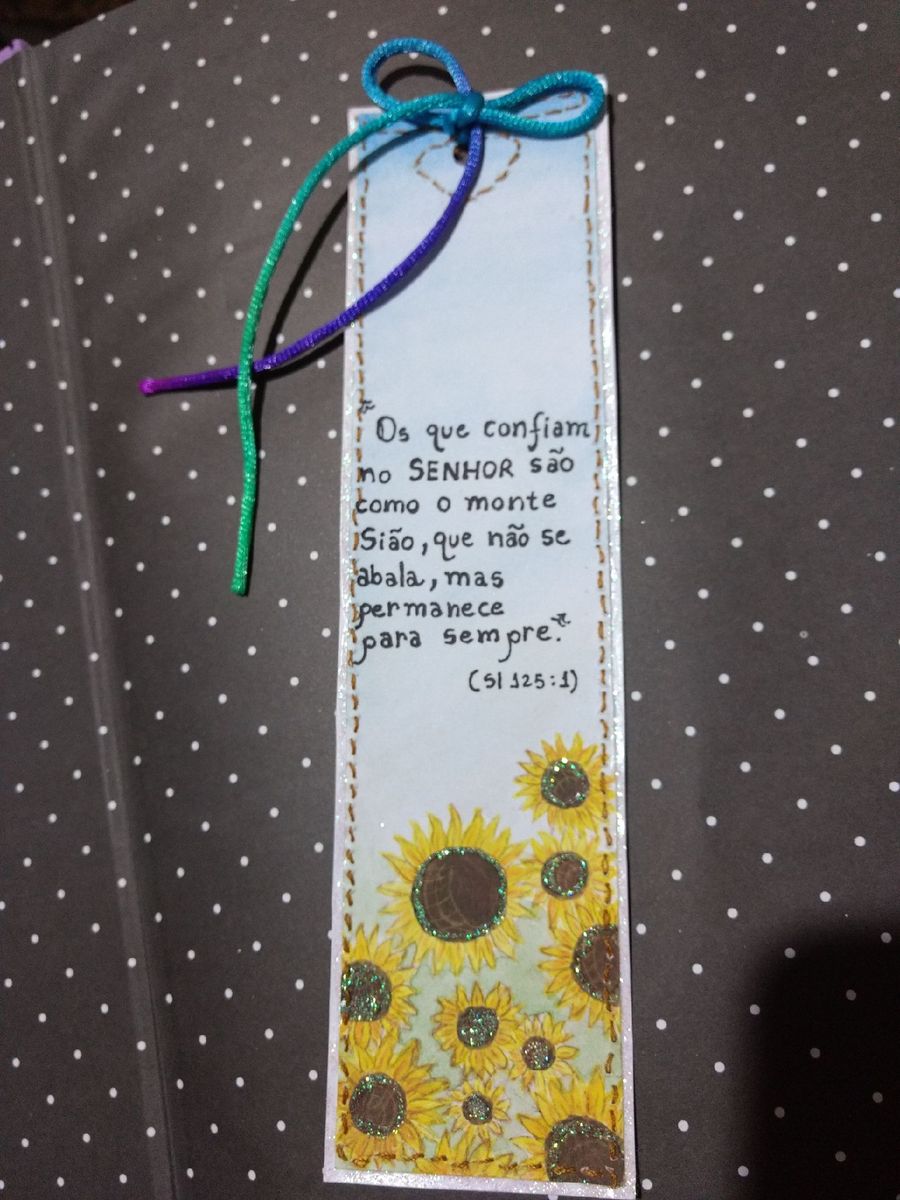 "Os que confiam
no SENHOR são
como o monte
Sião, que não se
abala, mas
permanece
para sempre."
(Sl 125:1)